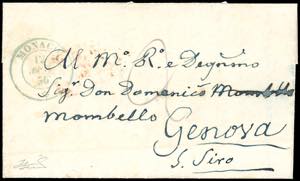 MONACO
Al M.º R.º e Degnimo
Sig.r Don Domenico Mombello
Mombello
Genova
S. Siro